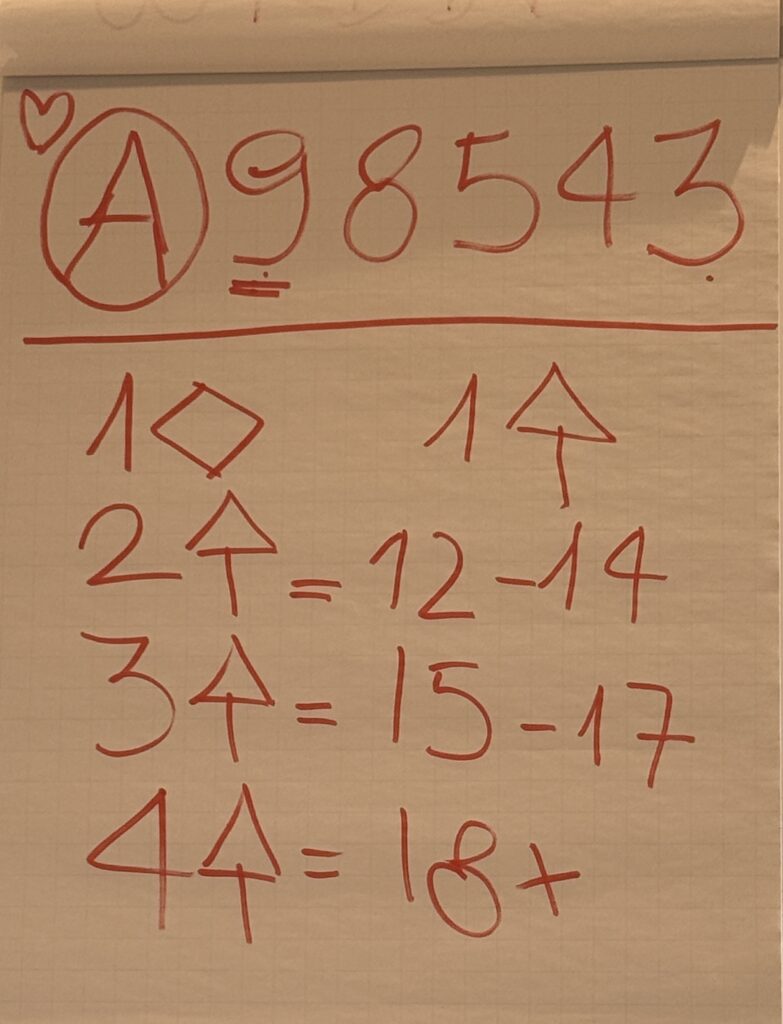 ♡ A 9 8 5 4 3
1♢ 1♤
2♤ = 12-14
3♤ = 15-17
4♤ = 18+